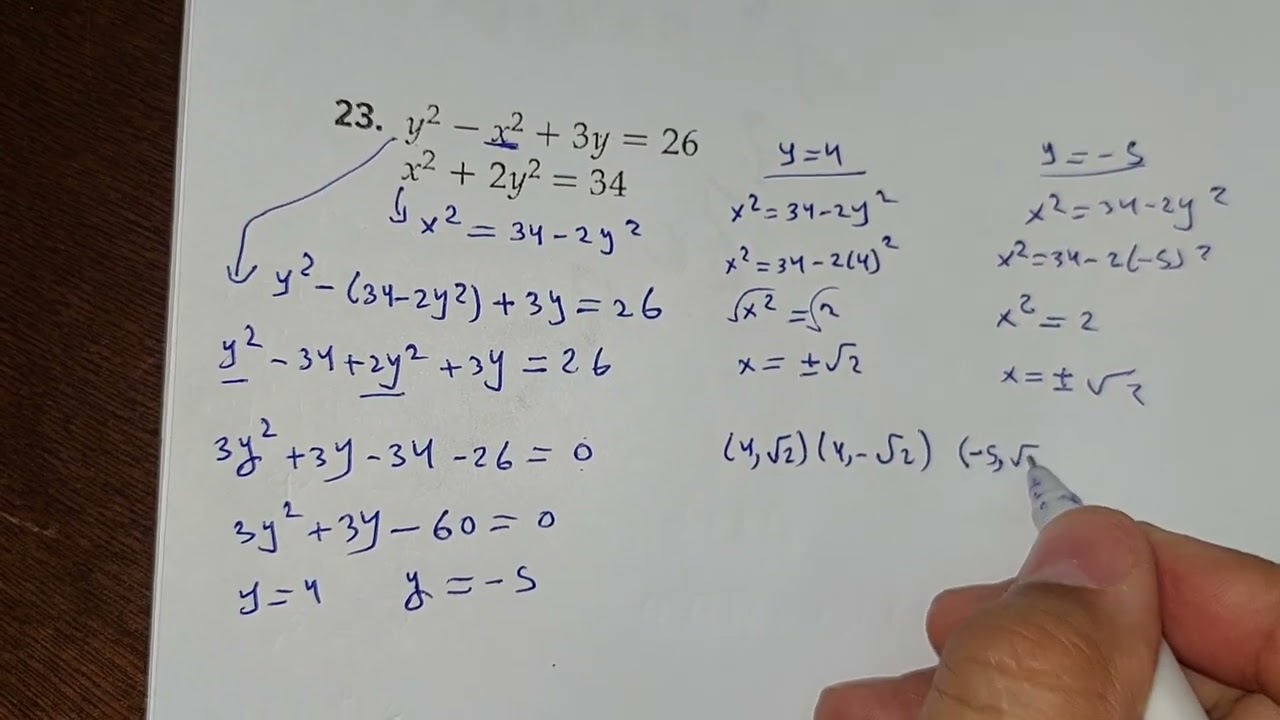 23. y² − x² + 3y = 26
x² + 2y² = 34
x² = 34 − 2y²
y² − (34 − 2y²) + 3y = 26
y² − 34 + 2y² + 3y = 26
3y² + 3y − 34 − 26 = 0
3y² + 3y − 60 = 0
y = 4 y = −5
y = 4
x² = 34 − 2y²
x² = 34 − 2(4)²
√x² = √2
x = ±√2
y = −5
x² = 34 − 2y²
x² = 34 − 2(−5)²
x² = 2
x = ±√2
(4, √2) (4, −√2) (−5, √